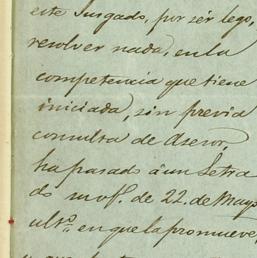 este Jusgado, por sér lego,
resolver nada, en la
competencia que tiene
iniciada, sin previa
consulta de Asesor,
ha pasado â un Letra
do en of. de 22. de Mayo
ult.º en que la promueve,